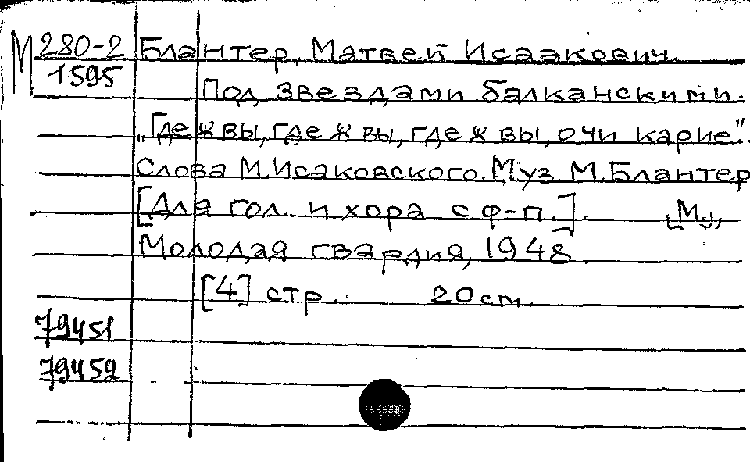 М 280-2 Блантер, Матвей Исаакович.
1595 Под звездами балканскими.
„Где ж вы, где ж вы, где ж вы, очи карие".
Слова М.Исаковского. Муз М.Блантер
[Для гол. и хора с ф-п.]. [М.],
Молодая гвардия, 1948.
[4] стр. 20 см.
79451
79452